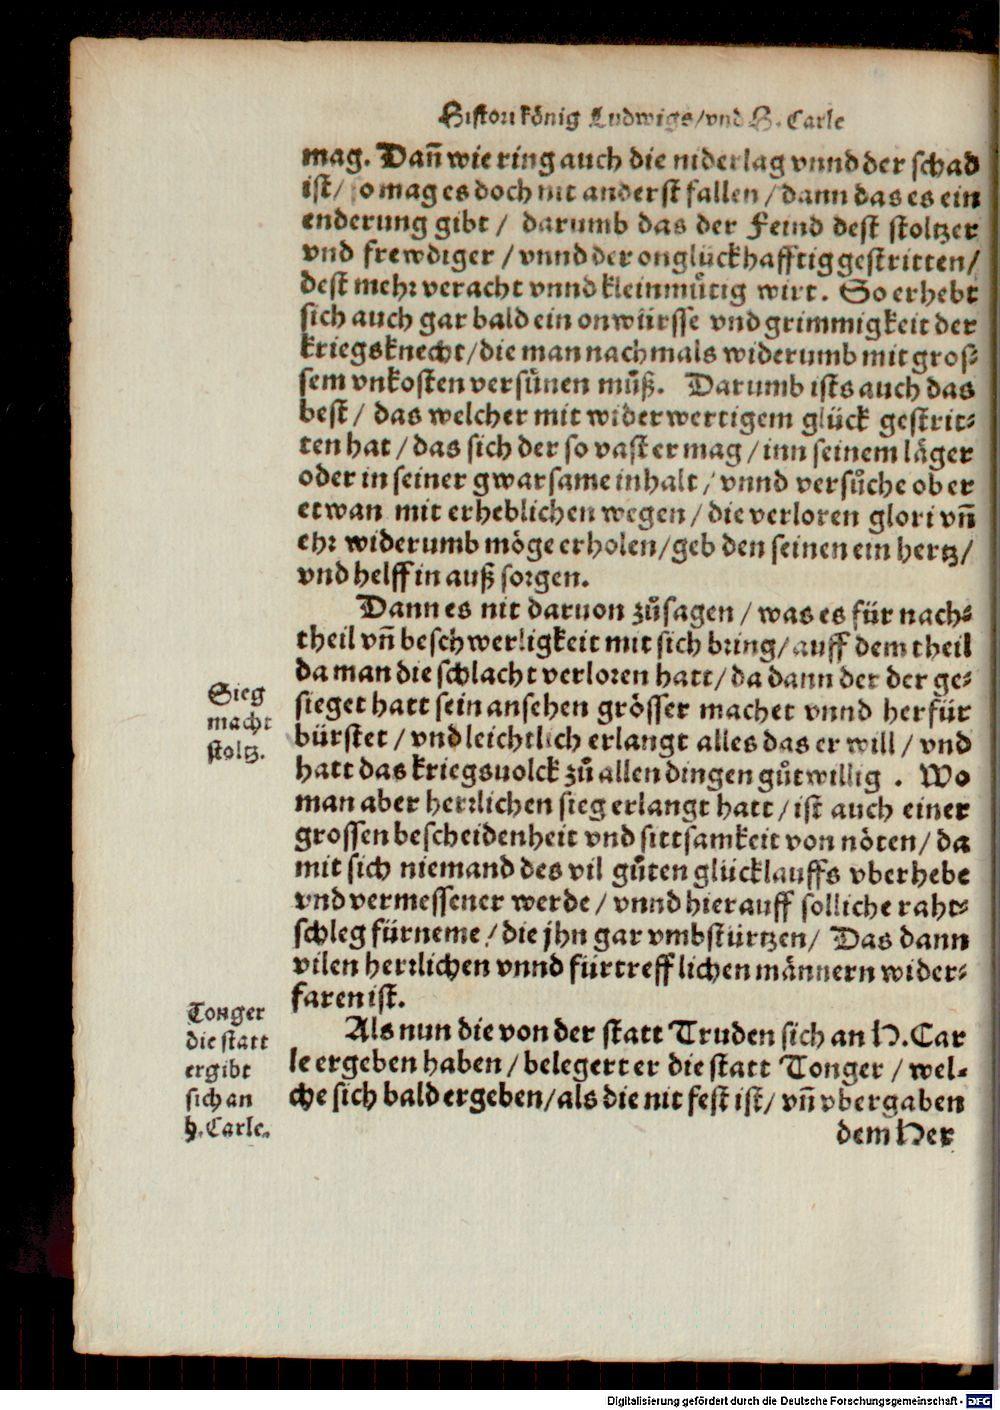 Histori König Ludwigs/vnd H. Carle
mag. Dañ wie ring auch die niderlag vnnd der schad
ist/ so mag es doch nit anderst fallen/ dann das es ein
enderung gibt/ darumb das der Feind dest stoltzer
vnd frewdiger/ vnnd der onglückhafftig gestritten/
dest mehr veracht vnnd kleinmuͤtig wirt. So erhebt
sich auch gar bald ein onwürsse vnd grimmigkeit der
kriegsknecht/ die man nachmals widerumb mit gros-
sem vnkosten versünen muͦß. Darumb ists auch das
best/ das welcher mit widerwertigem glück gestrit-
ten hat/ das sich der so vast er mag/ inn seinem läger
oder in seiner gwarsame inhalt/ vnnd versuͦche ob er
etwan mit erheblichen wegen/ die verloren glori vñ
ehr widerumb möge erholen/ geb den seinen ein hertz/
vnd helff in auß sorgen.
Dann es nit daruon zuͦsagen/ was es für nach-
theil vñ beschwerligkeit mit sich bring/ auff dem theil
da man die schlacht verloren hatt/ da dann der der ge-
sieget hatt sein ansehen grösser machet vnnd herfür
bürstet/ vnd leichtlich erlangt alles das er will/ vnd
hatt das kriegsuolck zuͦ allen dingen guͦtwillig. Wo
man aber herrlichen sieg erlangt hatt/ ist auch einer
grossen bescheidenheit vnd sittsamkeit von nöten/ da
mit sich niemand des vil guͦten glücklauffs vberhebe
vnd vermessener werde/ vnnd hierauff solliche raht-
schleg fürneme/ die jhn gar vmbstürtzen/ Das dann
vilen herrlichen vnnd fürtrefflichen männern wider-
faren ist.
Als nun die von der statt Truden sich an H. Car
le ergeben haben/ belegert er die statt Tonger/ wel-
che sich bald ergeben/ als die nit fest ist/ vñ vbergaben
dem Her
Sieg
macht
stoltz.
Tonger
die statt
ergibt
sich an
h. Carle.
Digitalisierung gefördert durch die Deutsche Forschungsgemeinschaft - DFG